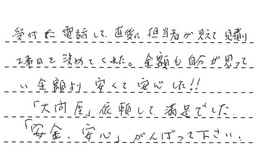 受付に電話して直ぐに担当者が見えて見積り
工事日を決めてくれた。金額も自分が思って
い金額より、安くて安心した!!
「大問屋」依頼して満足でした
「安全、安心」がんばって下さい。